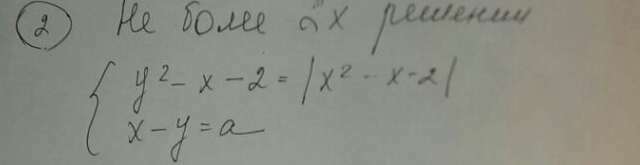 2 Не более 2х решений
y² - x - 2 = |x² - x - 2|
x - y = a